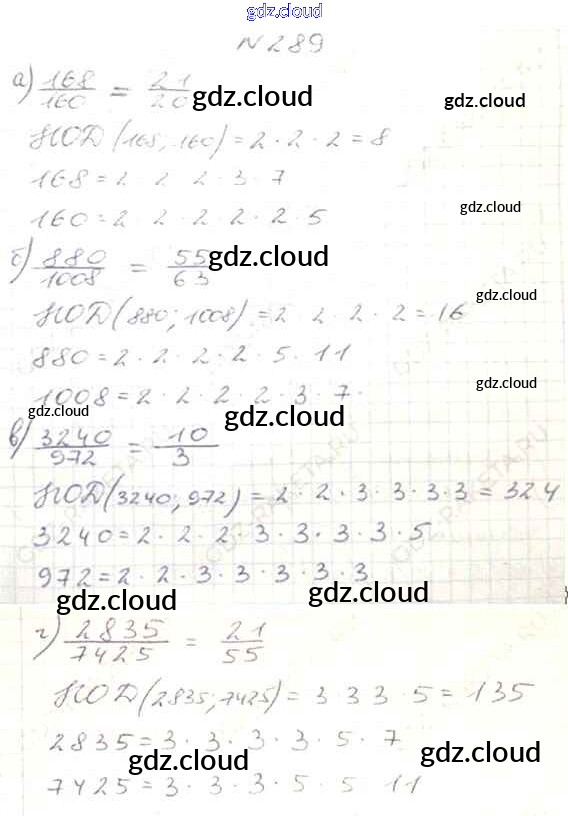 gdz.cloud
N 289
а) 168/160 = 21/20 gdz.cloud
НОД (168; 160) = 2 · 2 · 2 = 8
gdz.cloud
168 = 2 2 2 · 3 · 7
gdz.cloud
160 = 2 · 2 · 2 · 2 · 2 · 5
б) 880/1008 = 55/63 gdz.cloud
gdz.cloud
НОД (880; 1008) = 2 2 · 2 · 2 = 16
880 = 2 · 2 · 2 · 2 · 5 · 11
gdz.cloud
1008 = 2 · 2 · 2 · 2 · 3 · 7 ·
gdz.cloud gdz.cloud gdz.cloud
в) 3240/972 = 10/3
НОД (3240; 972) = 2 · 2 · 3 · 3 · 3 · 3 = 324
3240 = 2 · 2 · 2 · 3 · 3 · 3 · 3 · 5
972 = 2 · 2 · 3 · 3 · 3 · 3 · 3
gdz.cloud gdz.cloud
г) 2835/7425 = 21/55
НОД (2835; 7425) = 3 3 3 · 5 = 135
2835 = 3 · 3 · 3 · 3 · 5 · 7
gdz.cloud gdz.cloud
7425 = 3 · 3 · 3 · 5 · 5 11